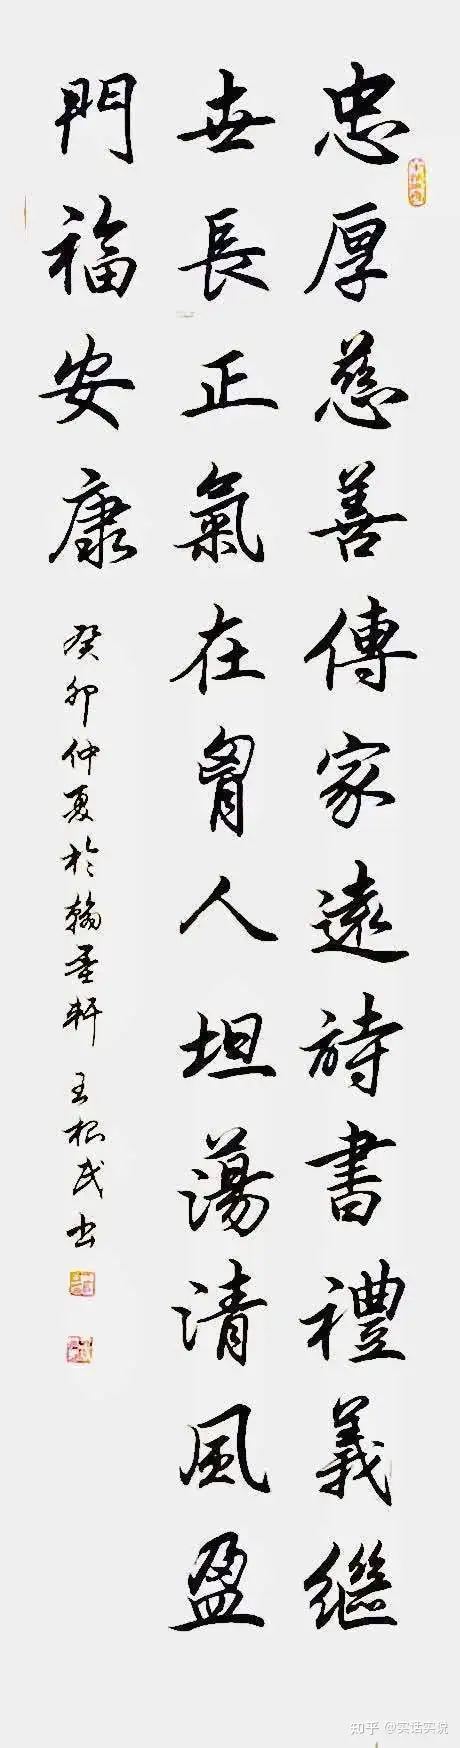 忠厚慈善傳家遠詩書禮義繼
世長正氣在胷人坦蕩清風盈
門福安康
癸卯仲夏於翰墨軒 王根民书
知乎 @实话实说